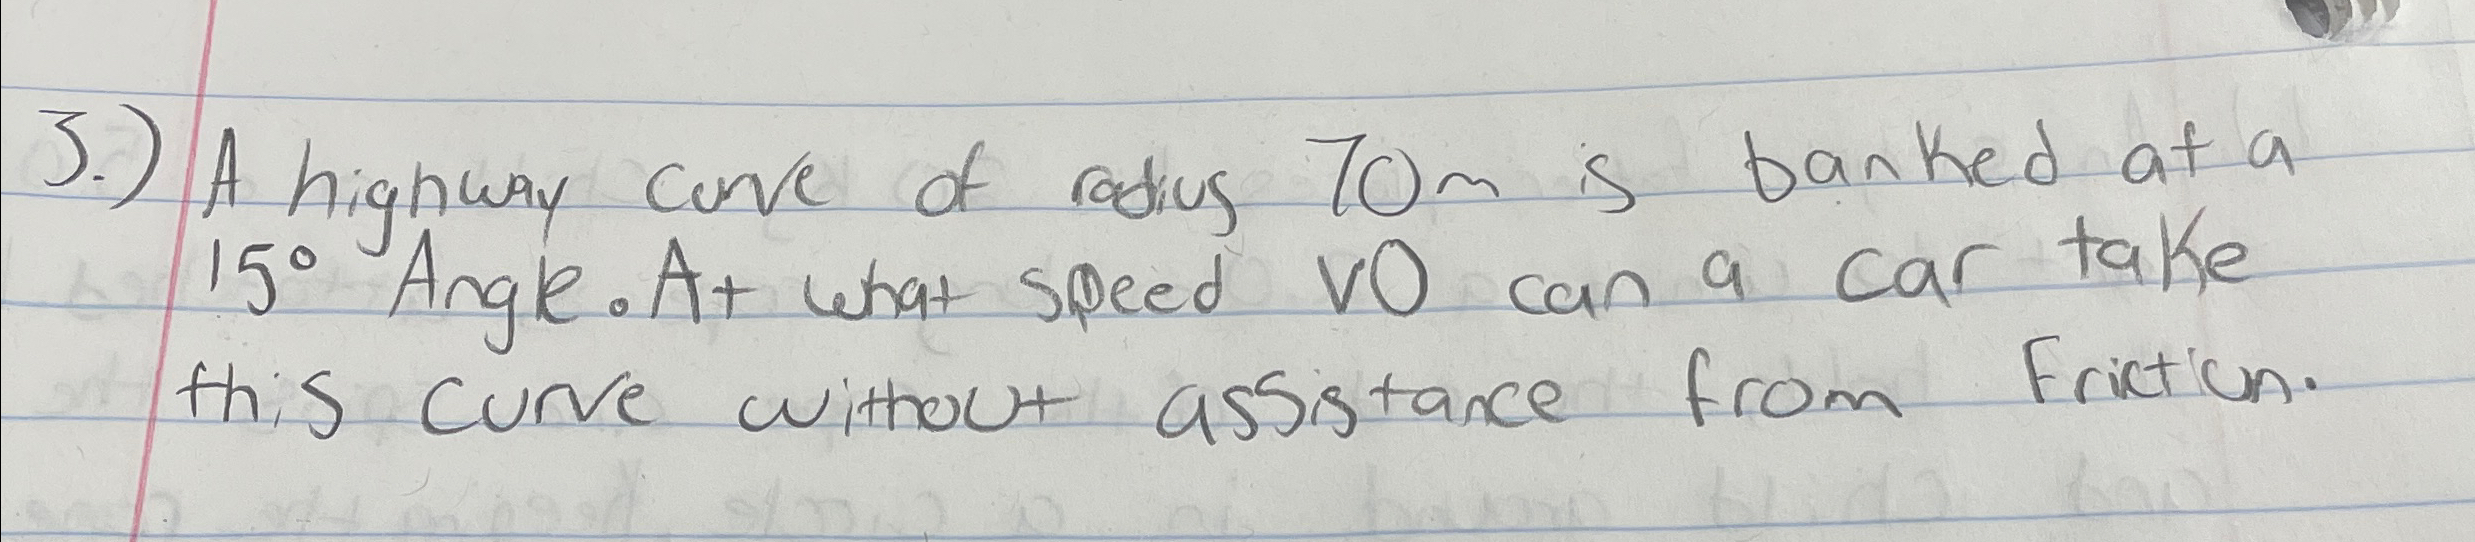 3.) A highway curve of radius 70m is banked at a
15° Angle. At what speed v0 can a car take
this curve without assistance from Friction.